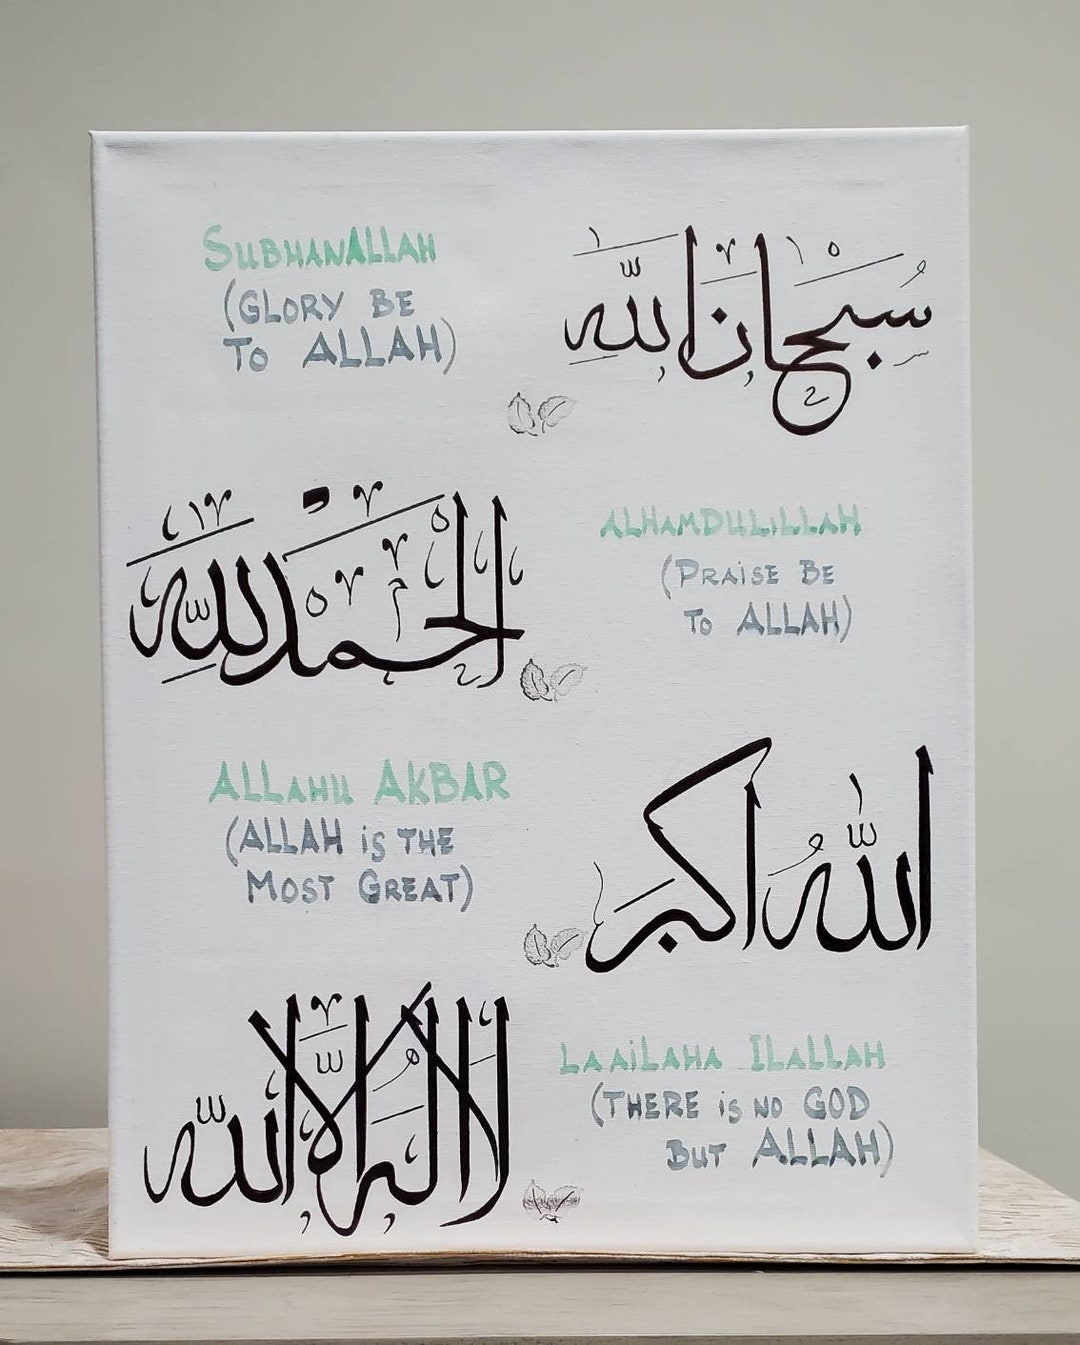 SUBHANALLAH
(GLORY BE
TO ALLAH)
سُبْحَانَ اللّٰهِ
الْحَمْدُ لِلّٰهِ
ALHAMDULILLAH
(PRAISE BE
TO ALLAH)
ALLAHU AKBAR
(ALLAH is THE
MOST GREAT)
اللّٰهُ اَكْبَر
لا اله الا الله
LAAiLAHA ILALLAH
(THERE is NO GOD
BUT ALLAH)